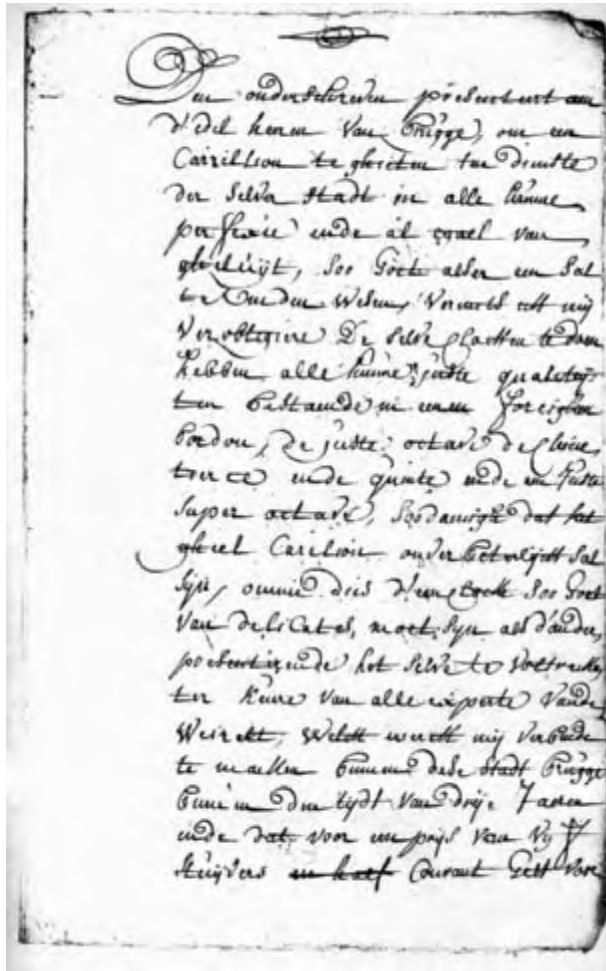 Den onderschreven presenteert aen
d'edel heeren van Brugge, om een
Carillion te ghieten ten dienste
der selver stadt in alle hunne
perfexie ende al egael van
gheluijt, soo goet alsser een sal
te vinden wesen, voorts ick mij
verobligiere de selve clocken te doen
hebben alle hunne juste qualitey-
ten bestaende in eenen
bordon, de juste octave de cleene
tierce ende quinte ende een juste
super octave, soodanigh dat het
gheel Carilion onverbeterlijck sal
sijn, omme dies d'een clocke soo goet
van delicates, moet sijn als d'ander,
presenterende het selve te voltrecken
ter keure van alle experte vande
weirelt, welck werck mij verbinde
te maecken binnen dese stadt Brugge
binnen den tijdt van drije Jaeren
ende dat voor een prijs van vij
stuijvers een half Courant gelt voor